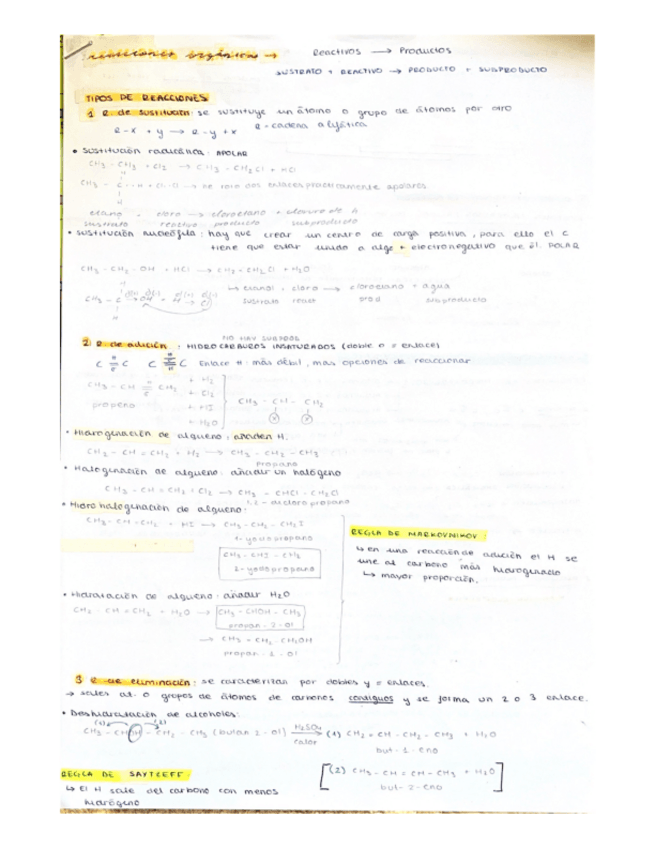 reacciones orgánicas → Reactivos → Productos
SUSTRATO + REACTIVO → PRODUCTO + SUBPRODUCTO
TIPOS DE REACCIONES
1 R. de sustitución: se sustituye un átomo o grupo de átomos por otro
R-X + y → R-y + x R = cadena alifática
• Sustitución radicálica: APOLAR
CH3 - CH3 + Cl2 → CH3 - CH2Cl + HCl
CH3 - C - H + Cl-Cl → se rompen dos enlaces prácticamente apolares
etano + cloro → cloroetano + cloruro de H
sustrato reactivo producto subproducto
• Sustitución nucleófila: hay que crear un centro de carga positiva, para ello el C
tiene que estar unido a algo + electronegativo que él. POLAR
CH3 - CH2 - OH + HCl → CH3 - CH2Cl + H2O
↳ etanol + cloro → cloroetano + agua
sustrato react prod subproducto
NO HAY SUBPROD
2 R de adición: HIDROCARBUROS INSATURADOS (doble o = enlace)
C = C C ≡ C Enlace π: más débil, más opciones de reaccionar
CH3 - CH = CH2 + H2
+ Cl2
propeno + HI
+ H2O
CH3 - CH - CH2
• Hidrogenación de alqueno: añaden H.
CH2 - CH = CH2 + H2 → CH3 - CH2 - CH3
propano
• Halogenación de alqueno: añadir un halógeno
CH3 - CH = CH2 + Cl2 → CH3 - CHCl - CH2Cl
1,2 - dicloropropano
• Hidrohalogenación de alqueno:
CH3 - CH = CH2 + HI → CH3 - CH2 - CH2I
1-yodopropano
CH3 - CHI - CH3
2-yodopropano
REGLA DE MARKOVNIKOV:
↳ en una reacción de adición el H se
une al carbono más hidrogenado
↳ mayor proporción.
• Hidratación de alqueno: añadir H2O
CH2 - CH = CH2 + H2O → CH3 - CHOH - CH3
propan - 2 - ol
→ CH3 - CH2 - CH2OH
propan - 1 - ol
3 R de eliminación: se caracterizan por dobles y = enlaces.
→ sales át. o grupos de átomos de carbonos contiguos y se forma un 2 o 3 enlace.
• Deshidratación de alcoholes:
(1) (2)
CH3 - CHOH - CH2 - CH3 (butan 2 - ol) H2SO4 calor → (1) CH2 = CH - CH2 - CH3 + H2O
but - 1 - eno
REGLA DE SAYTZEFF: [(2) CH3 - CH = CH - CH3 + H2O]
but - 2 - eno
↳ El H sale del carbono con menos
hidrógeno